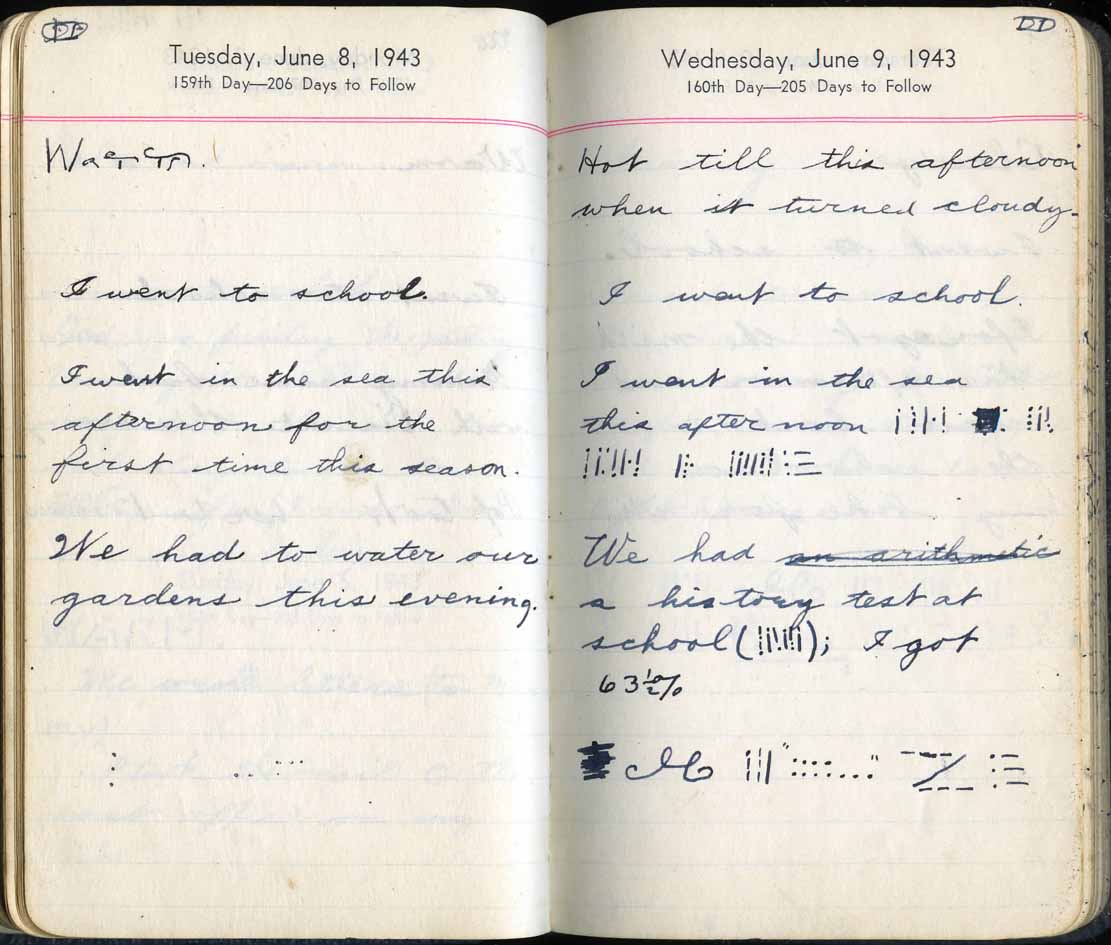 Tuesday, June 8, 1943
159th Day—206 Days to Follow
I went to school.
I went in the sea this
afternoon for the
first time this season.
We had to water our
gardens this evening.
Wednesday, June 9, 1943
160th Day—205 Days to Follow
Hot till this afternoon
when it turned cloudy.
I went to school.
I went in the sea
this afternoon
We had an arithmetic
a history test at
school ( ); I got
63½%